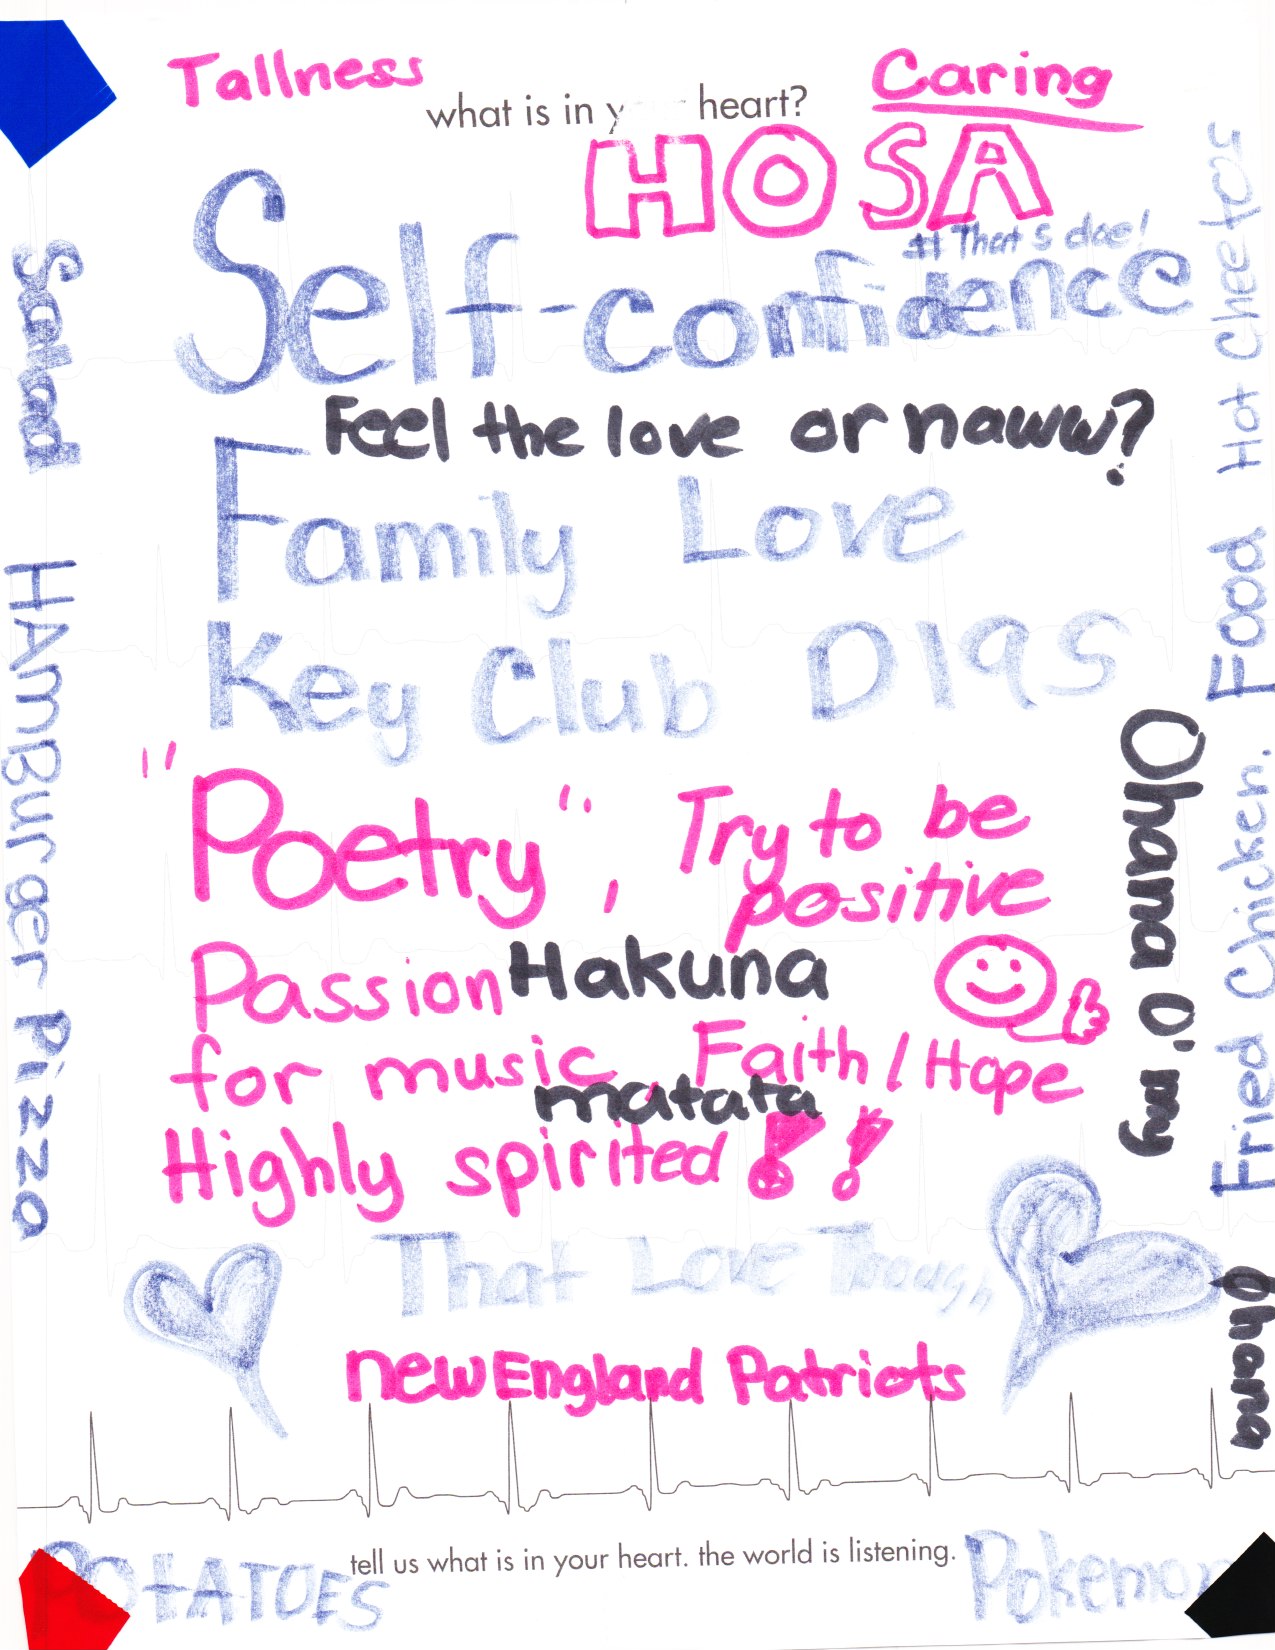 Tallness
what is in y heart?
Caring
HOSA
#1 That's doe!
Self-confidence
Feel the love or naww?
Family Love
Key Club DIAS
"Poetry", Try to be
positive
Passion Hakuna
for music, Faith / Hope
matata
Highly spirited!!
That Love Though
new England Patriots
tell us what is in your heart. the world is listening.
POtATOES
Pokemon
Salad
HAmBurger Pizza
Hot Cheetos
Fried Chicken. Food
Ohana O' my
Ohana